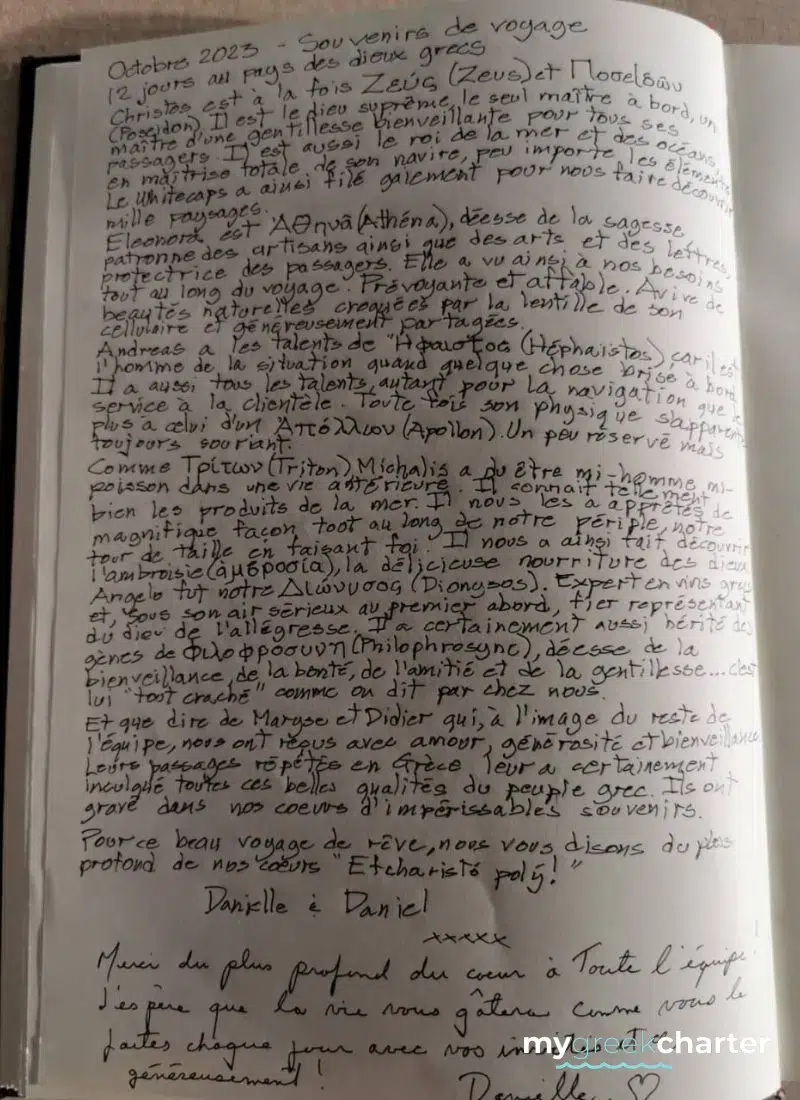 Octobre 2023 - Souvenirs de voyage
12 jours au pays des dieux grecs
Christos est à la fois Ζεύς (Zeus) et Ποσειδών
(Poseidon). Il est le dieu suprême, le seul maître à bord, un
maître d'une gentillesse bienveillante pour tous ses
passagers. Il est aussi le roi de la mer et des océans,
en maîtrise totale de son navire, peu importe les éléments
Le Whitecaps a ainsi filé galement pour nous faire découvrir
mille paysages.
Eleonora est Αθηνά (Athéna), déesse de la sagesse,
patronne des artisans ainsi que des arts et des lettres,
protectrice des passagers. Elle a vu ainsi à nos besoins
tout au long du voyage. Prévoyante et affable. Avive de
beautés naturelles croquées par la lentille de son
cellulaire et généreusement partagées.
Andreas a les talents de Ηφαιστος (Héphaistos), car il est
l'homme de la situation quand quelque chose brise à bord
Il a aussi tous les talents, autant pour la navigation que le
service à la clientèle. Toute fois son physique s'apparente
plus à celui d'un Απόλλων (Apollon). Un peu réservé mais
toujours souriant.
Comme Τρίτων (Triton), Michalis a du être mi-homme mi-
poisson dans une vie antérieure. Il connait tellement
bien les produits de la mer. Il nous les a apprêtés de
magnifique façon, tout au long de notre périple, notre
tour de taille en faisant foi. Il nous a ainsi fait découvrir
l'ambroisie (ἀμβροσία), la délicieuse nourriture des dieux
Angelo fut notre Διώνυσος (Dionysos). Expert en vins grecs
et, sous son air sérieux au premier abord, fier représentant
du dieu de l'allégresse. Il a certainement aussi hérité des
gènes de Φιλοφροσυνη (Philophrosyne), déesse de la
bienveillance, de la bonté, de l'amitié et de la gentillesse... c'est
lui "tout craché" comme on dit par chez nous.
Et que dire de Maryse et Didier qui, à l'image du reste de
l'équipe, nous ont reçus avec amour, générosité et bienveillance
Leurs passages répétés en Grèce leur a certainement
inculqué toutes ces belles qualités du peuple grec. Ils ont
gravé dans nos coeurs d'impérissables souvenirs.
Pour ce beau voyage de rêve, nous vous disons du plus
profond de nos coeurs "Efcharistó polý!"
Danielle & Daniel
xxxxx
Merci du plus profond du coeur à Toute l'équipe!
J'espère que la vie vous gâtera comme vous le
faites chaque jour avec vos invités et si
généreusement!
Danielle ♡
mygreekcharter